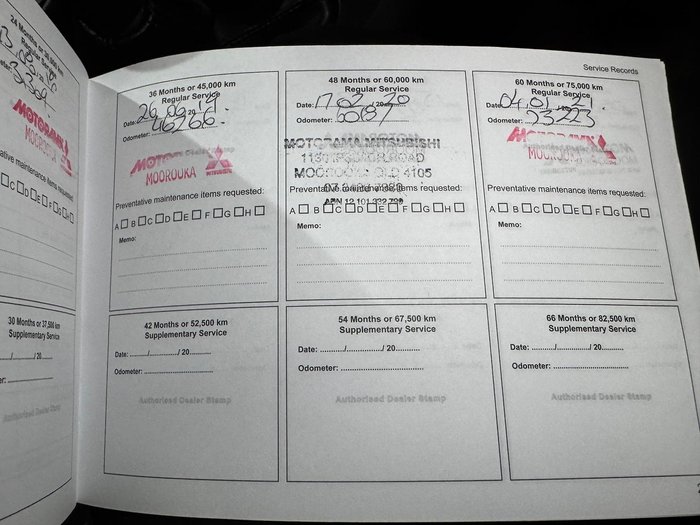 Service Records
24 Months or 30,000 km
Regular Service
MOTORAMA
MOOROOKA
30 Months or 37,500 km
Supplementary Service
/ 20
Authorised Dealer Stamp
36 Months or 45,000 km
Regular Service
Date: 26 09 20 19
Odometer: 46266.
MOTORAMA
MOOROOKA MITSUBISHI
Preventative maintenance items requested:
A B C D E F G H
Memo:
48 Months or 60,000 km
Regular Service
Date: 17 02 20 20
Odometer: 60187
MOTORAMA MITSUBISHI
MOOROOKA QLD 4105
Preventative maintenance items requested:
A B C D E F G H
Memo:
60 Months or 75,000 km
Regular Service
Date: 04 01 21
Odometer: 73223
MOTORAMA
MOOROOKA
Preventative maintenance items requested:
A B C D E F G H
Memo:
42 Months or 52,500 km
Supplementary Service
Date: ....../............/ 20..........
Odometer: ............................
Authorised Dealer Stamp
54 Months or 67,500 km
Supplementary Service
Date: ........../........../ 20..........
Odometer: ............................
Authorised Dealer Stamp
66 Months or 82,500 km
Supplementary Service
Date: ........../........../ 20..........
Odometer: ............................
Authorised Dealer Stamp